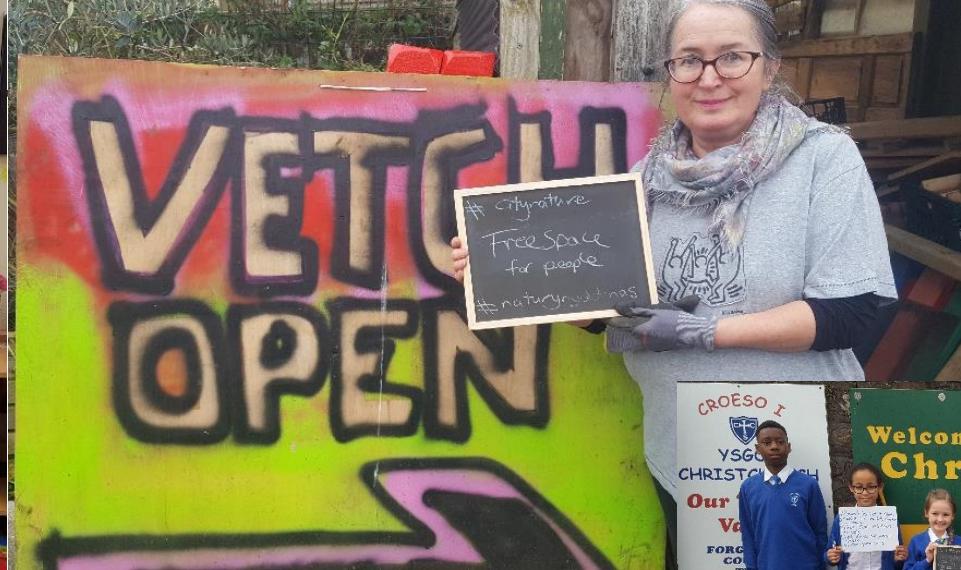 VETCH
OPEN
# citynature
Free Space
for people
CROESO I
YSGO
CHRISTCH CH
Our
Va
FORG
CO
Welcom
Chr